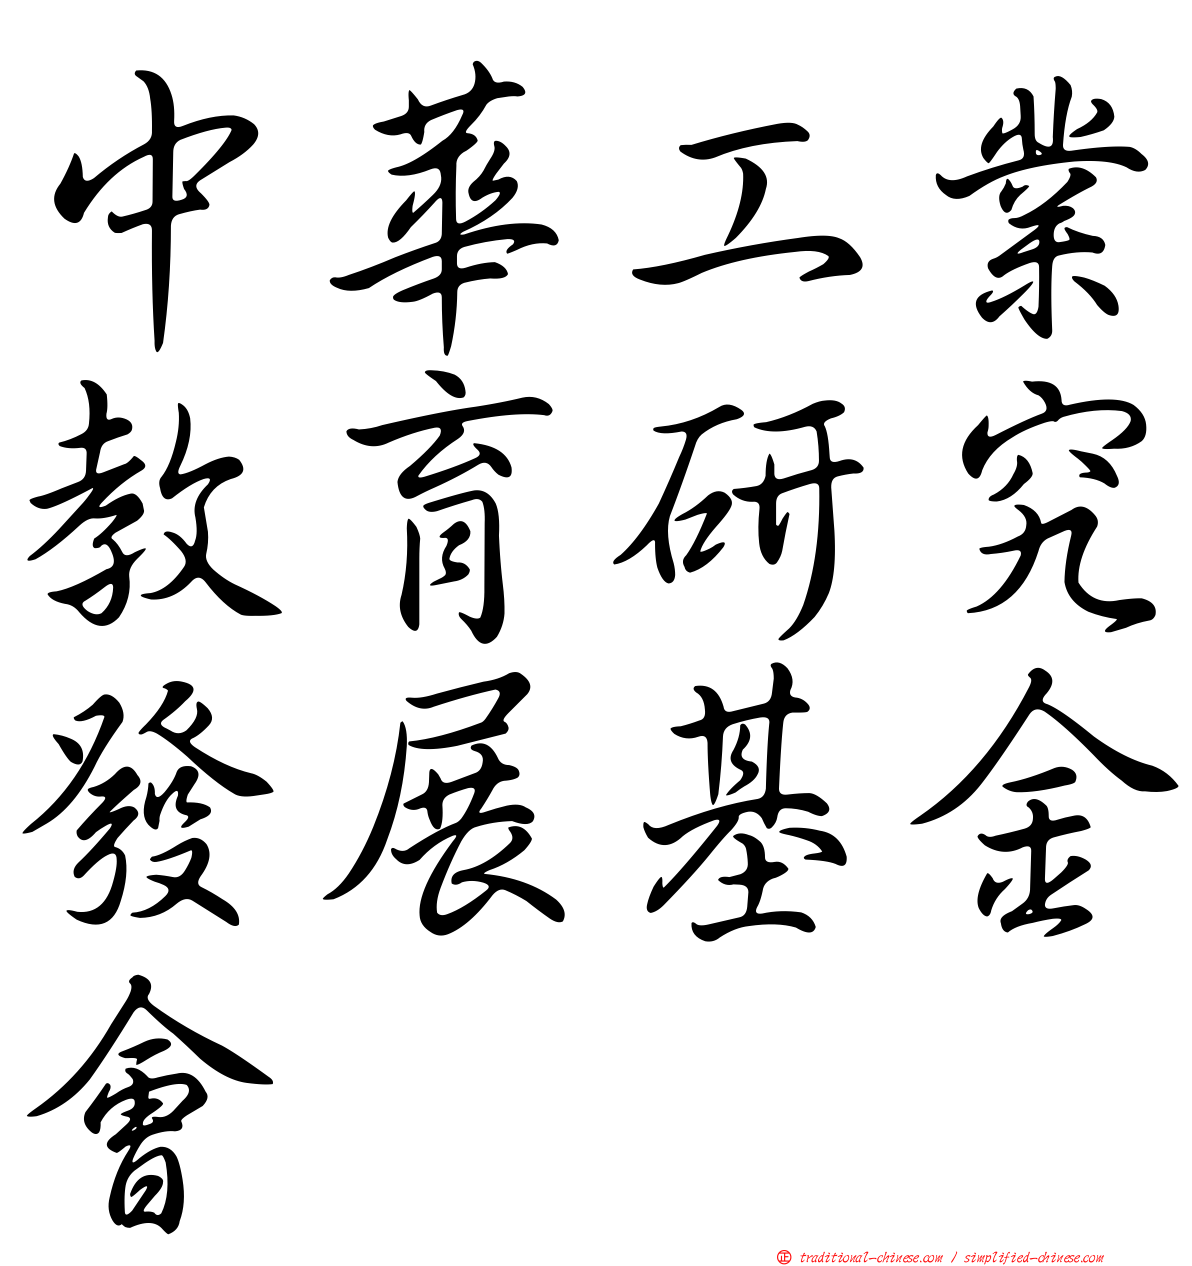 中華工業
教育研究
發展基金
會
正 traditional-chinese.com / simplified-chinese.com